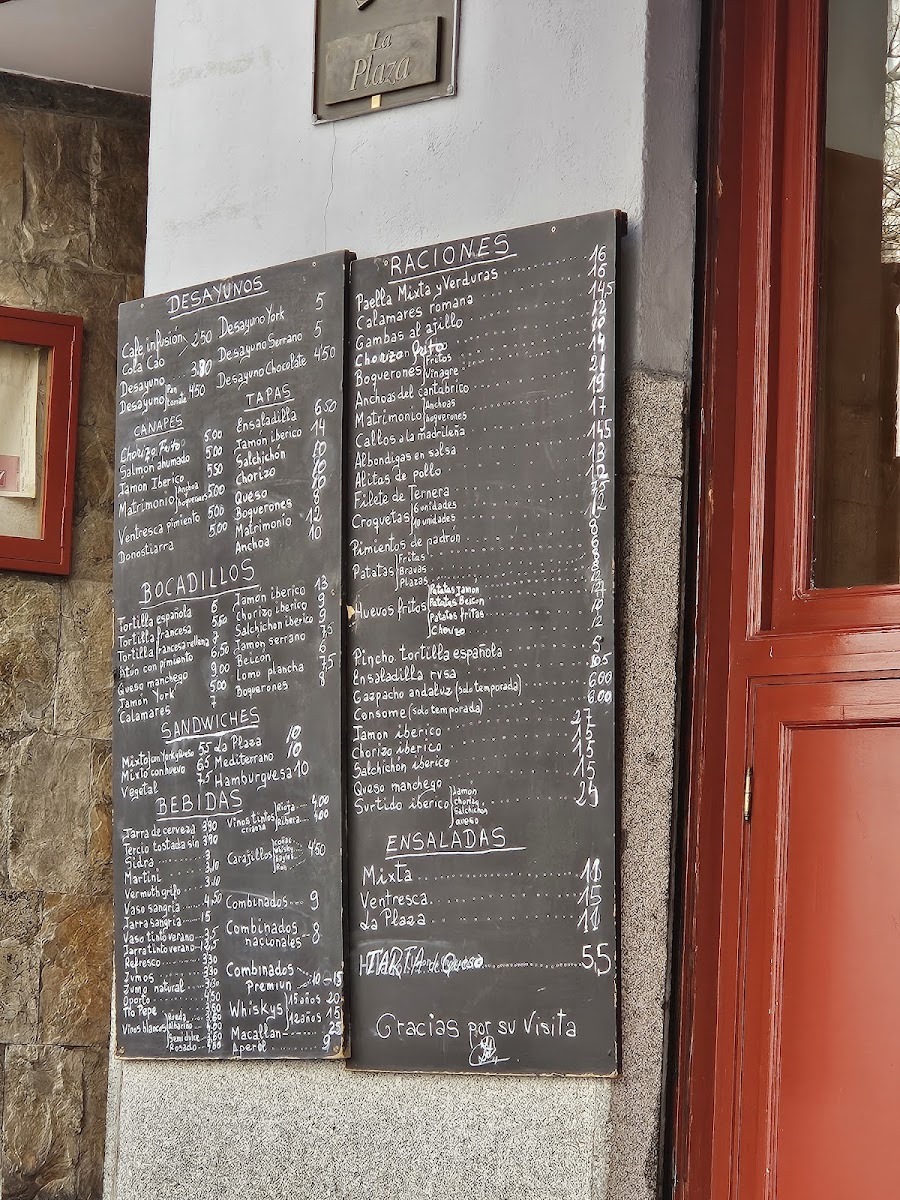 La
Plaza
DESAYUNOS
Cafe infusión 2'50
Cola Cao
Desayuno 3.80
Desayuno Pan tomate 4'50
Desayuno York 5
Desayuno Serrano 5
Desayuno Chocolate 4'50
CANAPES
Chorizo Frito 5'00
Salmon ahumado 5'00
Jamon Iberico 5'50
Matrimonio Anchoa boquerones 5'00
Ventresca pimiento 5'00
Donostiarra 5'00
TAPAS
Ensaladilla 6'50
Jamon iberico 14
Salchichon 10
Chorizo 10
Queso 10
Boquerones 8
Matrimonio 12
Anchoa 10
BOCADILLOS
Tortilla española 6
Tortilla francesa 5'60
Tortilla francesa rellena 7
Atún con pimiento 6'50
Queso manchego 9'00
Jamon York 5'00
Calamares 7
Jamon iberico 13
Chorizo iberico 9
Salchichon iberico 9
Jamon serrano 7'5
Beicon 6
Lomo plancha 7'5
Boquerones 8
SANDWICHES
Mixto con York y queso 5'5
Mixto con huevo 6'5
Vegetal 7'5
La Plaza 10
Mediterraneo 10
Hamburguesa 10
BEBIDAS
Jarra de cerveza 3'90
Tercio tostada sin 3'90
Sidra 3
Martini 3'10
Vermuth grifo 3'10
Vaso sangria 4'50
Jarra sangria 15
Vaso tinto verano 3'5
Jarra tinto verano
Refresco 3'30
Zumos 3'30
Zumo natural 3'30
Oporto 4'50
Tio Pepe
Vinos blancos Rueda
Albariño
Semidulce
Rosado
Vinos tintos crianza Rioja 4'00
Ribera 4'00
Carajillos 4'50
coñac
Whisky
Baylys
Ron
Combinados 9
Combinados nacionales 8
Combinados Premiun 10-15
Whiskys 15 años 20
12 años 15
Macallan 25
Aperol 9
RACIONES
Paella Mixta y Verduras 16
Calamares romana 16
Gambas al ajillo 14'5
Chorizo frito
Boquerones Fritos
Vinagre
Anchoas del cantabrico 21
Matrimonio Anchoas boquerones 19
Callos a la madrileña
Albondigas en salsa
Alitas de pollo
Filete de Ternera
Croquetas 6 unidades
10 unidades
Pimientos de padrón
Patatas Fritas
Bravas
Plazas
Huevos fritos Patatas Jamon
Patatas Beicon
Patatas fritas
Chorizo
Pincho tortilla española 5
Ensaladilla rusa
Gazpacho andaluz (solo temporada)
Consome (solo temporada) 6'00
Jamon iberico 27
Chorizo iberico 15
Salchichón iberico 15
Queso manchego 15
Surtido iberico
Jamon
chorizo
Salchichon
queso
ENSALADAS
Mixta
Ventresca 15
La Plaza
TARTA de Queso 5,5
Gracias por su visita